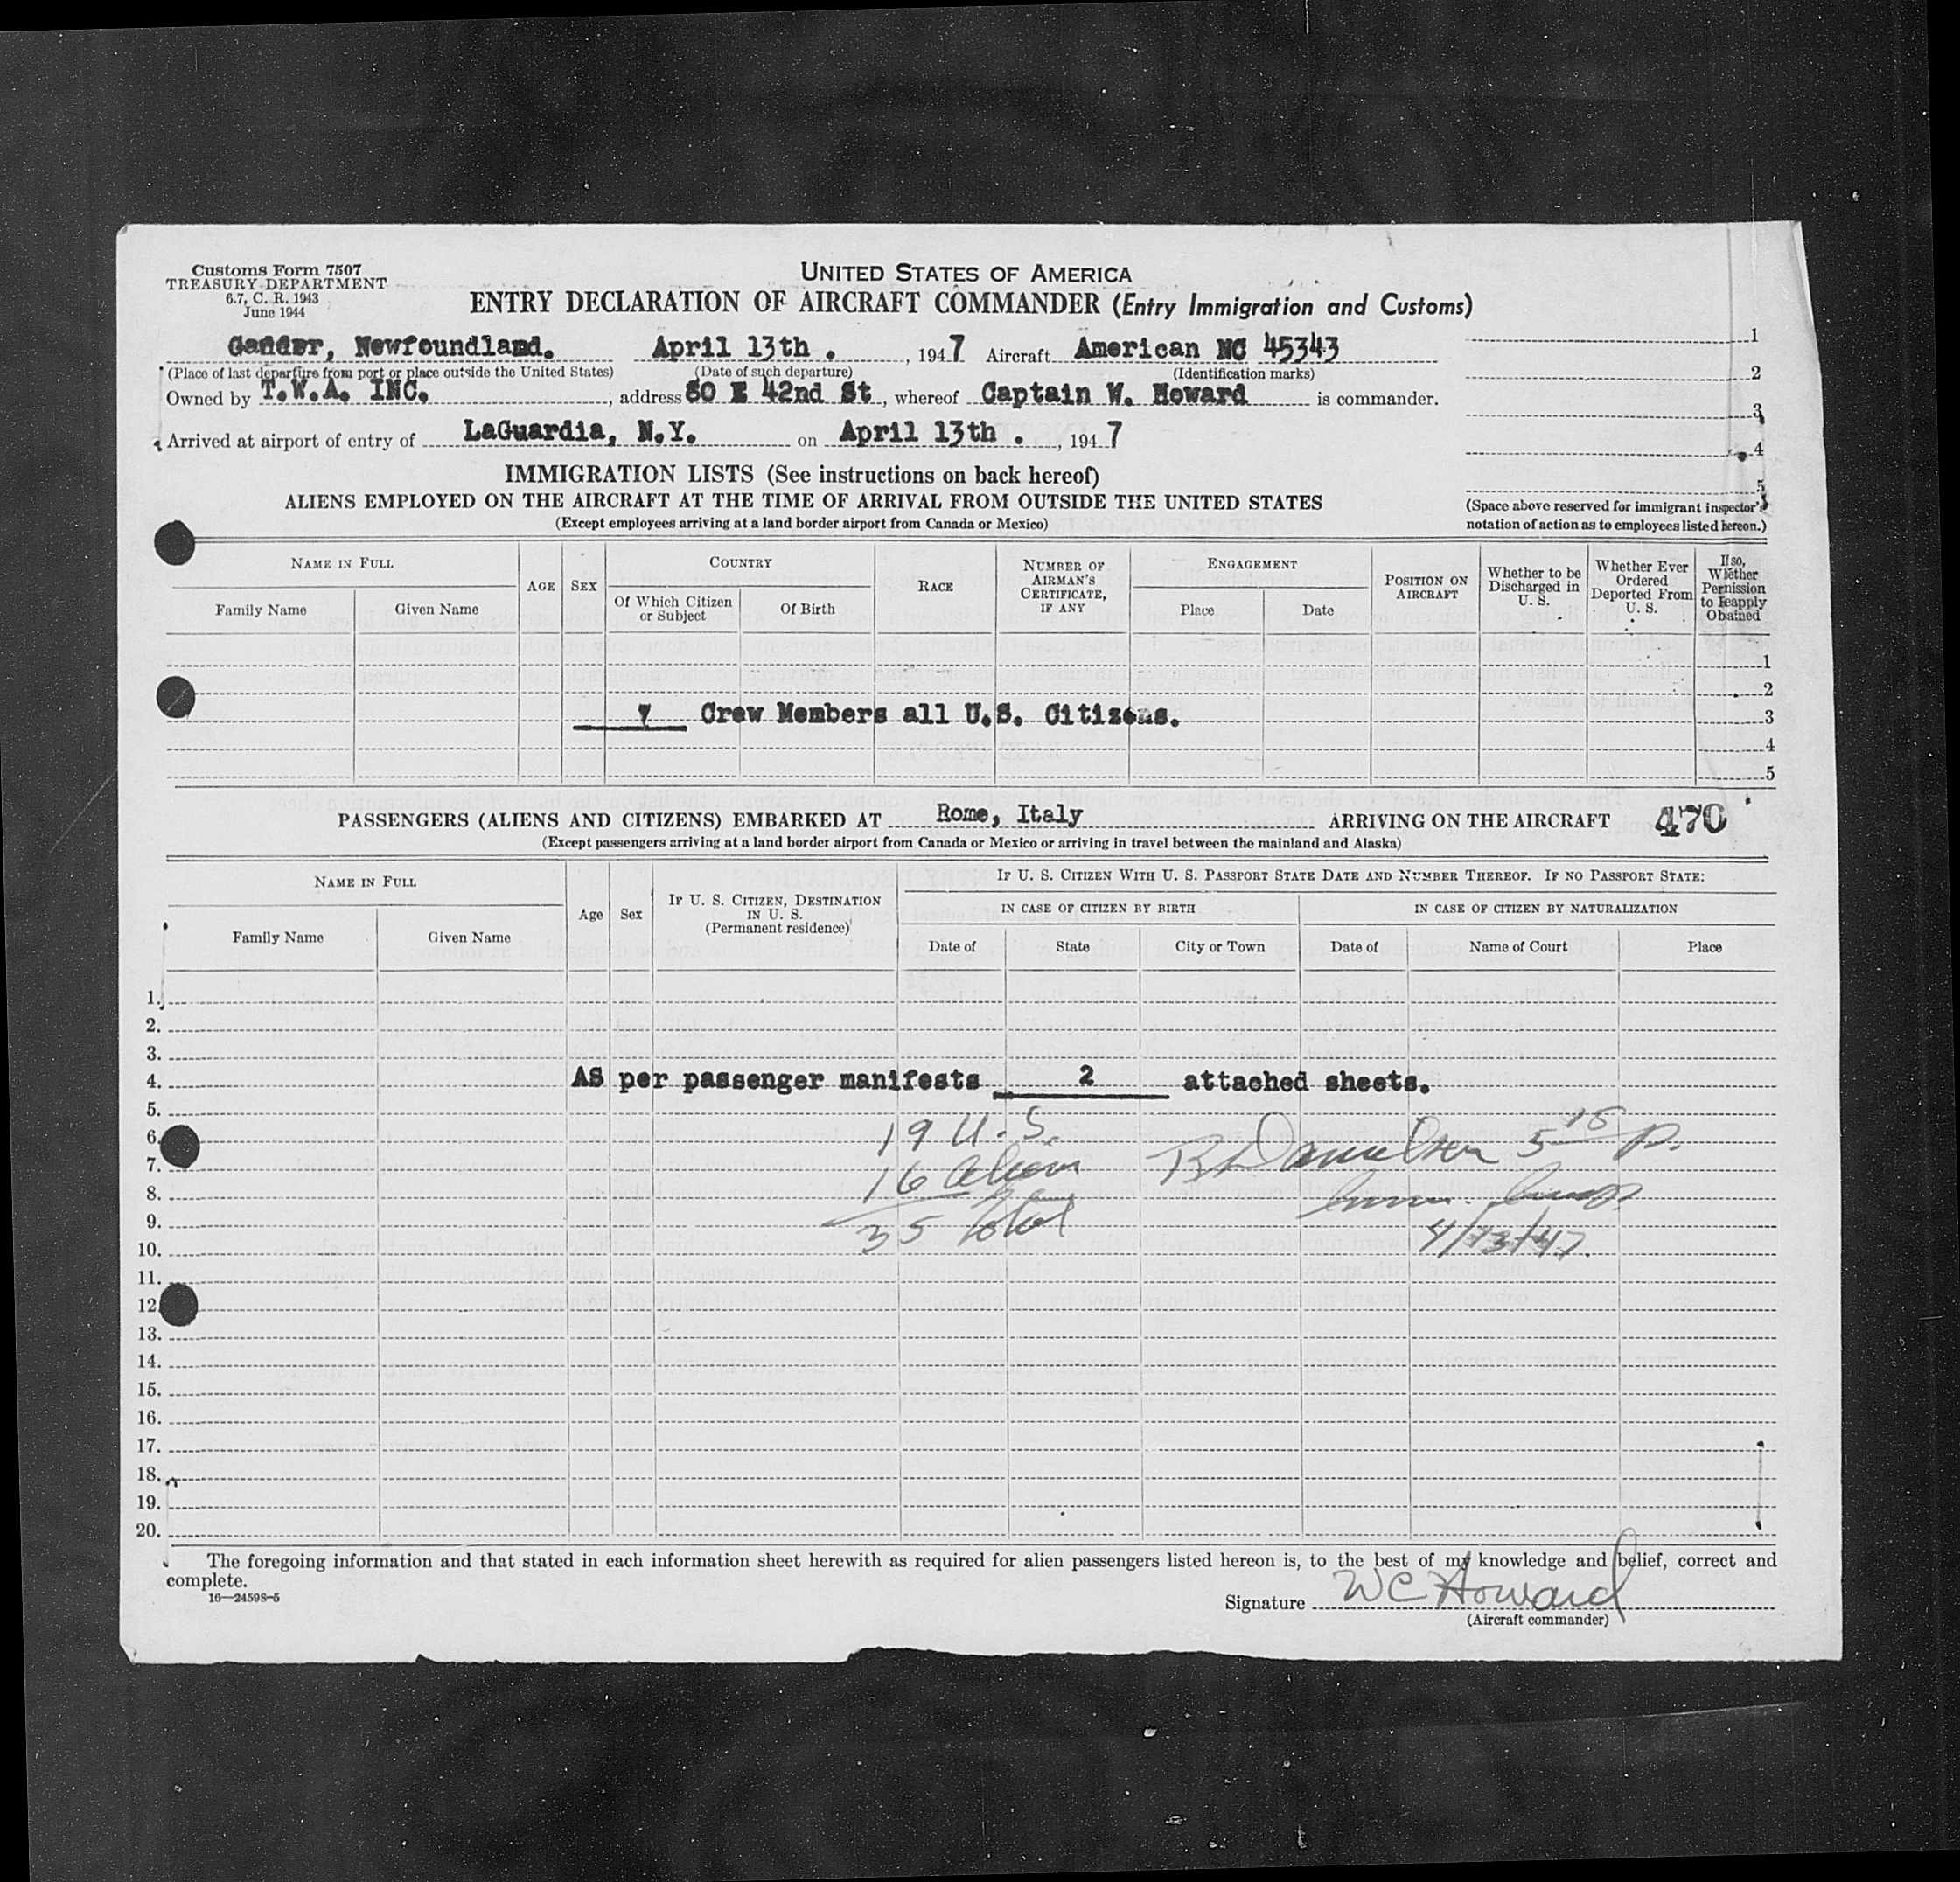 Customs Form 7507
TREASURY DEPARTMENT
6.7, C. R. 1943
June 1944
UNITED STATES OF AMERICA
ENTRY DECLARATION OF AIRCRAFT COMMANDER (Entry Immigration and Customs)
Gander, Newfoundland. April 13th . , 1947 Aircraft American NC 45343
(Place of last departure from port or place outside the United States) (Date of such departure) (Identification marks)
Owned by T.W.A. INC. , address 80 E 42nd St , whereof Captain W. Howard is commander.
Arrived at airport of entry of LaGuardia, N.Y. on April 13th . , 1947
1
2
3
4
5
(Space above reserved for immigrant inspector's notation of action as to employees listed hereon.)
IMMIGRATION LISTS (See instructions on back hereof)
ALIENS EMPLOYED ON THE AIRCRAFT AT THE TIME OF ARRIVAL FROM OUTSIDE THE UNITED STATES
(Except employees arriving at a land border airport from Canada or Mexico)
NAME IN FULL
Family Name Given Name
AGE SEX
COUNTRY
Of Which Citizen or Subject Of Birth
RACE
NUMBER OF AIRMAN'S CERTIFICATE, IF ANY
ENGAGEMENT
Place Date
POSITION ON AIRCRAFT
Whether to be Discharged in U. S.
Whether Ever Ordered Deported From U. S.
If so, Whether Permission to Reapply Obtained
1
2
Crew Members all U.S. Citizens. 3
4
5
PASSENGERS (ALIENS AND CITIZENS) EMBARKED AT Rome, Italy ARRIVING ON THE AIRCRAFT 470
(Except passengers arriving at a land border airport from Canada or Mexico or arriving in travel between the mainland and Alaska)
NAME IN FULL
Family Name Given Name
Age Sex
IF U. S. CITIZEN, DESTINATION IN U. S.
(Permanent residence)
IF U. S. CITIZEN WITH U. S. PASSPORT STATE DATE AND NUMBER THEREOF. IF NO PASSPORT STATE:
IN CASE OF CITIZEN BY BIRTH IN CASE OF CITIZEN BY NATURALIZATION
Date of State City or Town Date of Name of Court Place
1.
2.
3.
4. AS per passenger manifests 2 attached sheets.
5.
6. 19 U.S.
7. 16 alien
8.
9. 35 total
10. 4/13/47.
11.
12.
13.
14.
15.
16.
17.
18.
19.
20.
The foregoing information and that stated in each information sheet herewith as required for alien passengers listed hereon is, to the best of my knowledge and belief, correct and
complete.
16—24598-5
Signature WC Howard
(Aircraft commander)